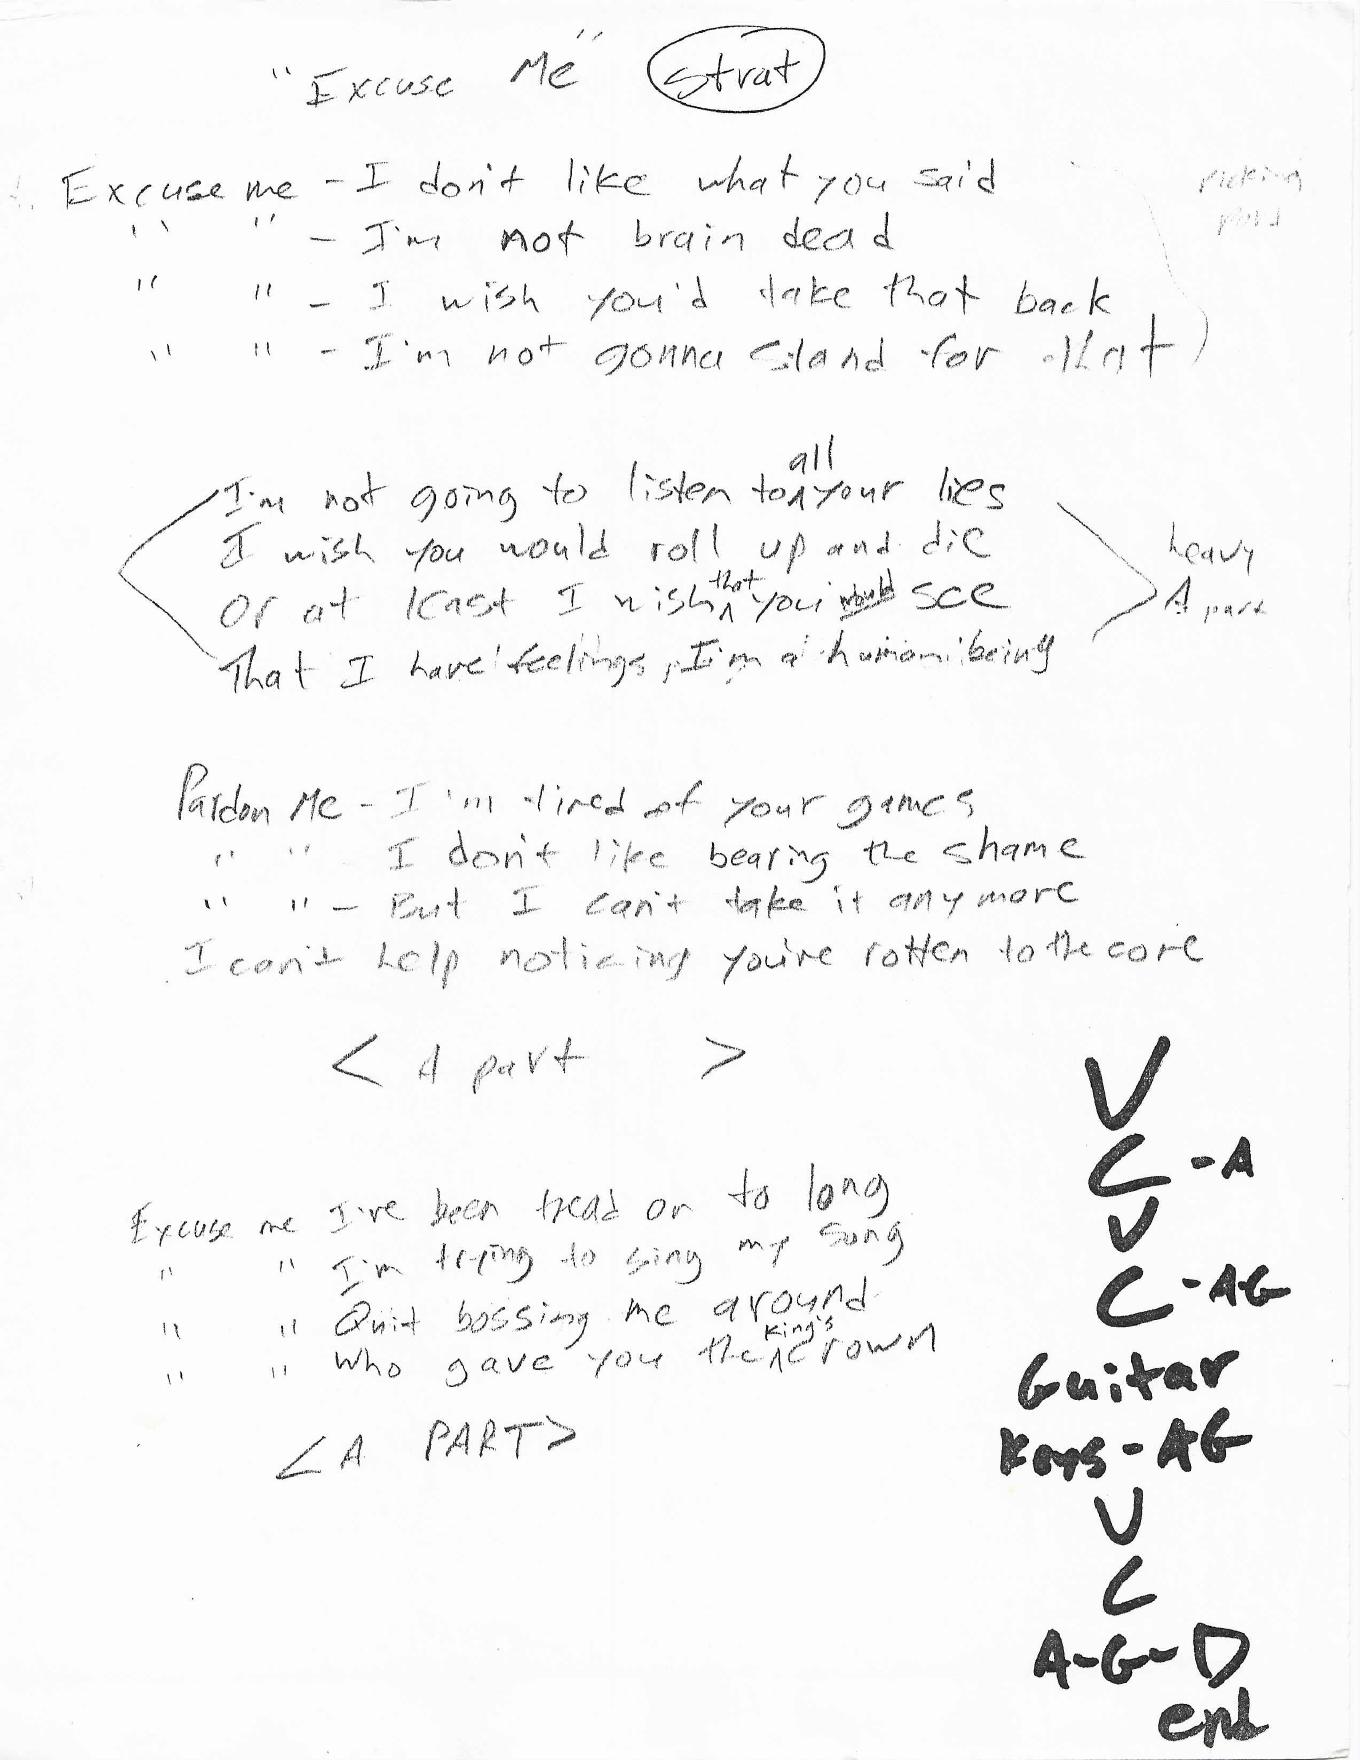 "Excuse Me" strat
Excuse me - I don't like what you said
" " - I'm not brain dead
" " - I wish you'd take that back
" " - I'm not gonna stand for that
picking
I'm not going to listen to all your lies
I wish you would roll up and die
Or at least I wish that you would see
That I have feelings, I'm a human being
heavy
A part
Pardon Me - I'm tired of your games
" " - I don't like bearing the shame
" " - But I can't take it anymore
I can't help noticing you're rotten to the core
< A part >
Excuse me I've been tread on to long
" " I'm trying to sing my song
" " Quit bossing me around
" " Who gave you the king's crown
<A PART>
V
C - A
V
C - AG
Guitar
Keys - AG
V
C
A-G-D
end